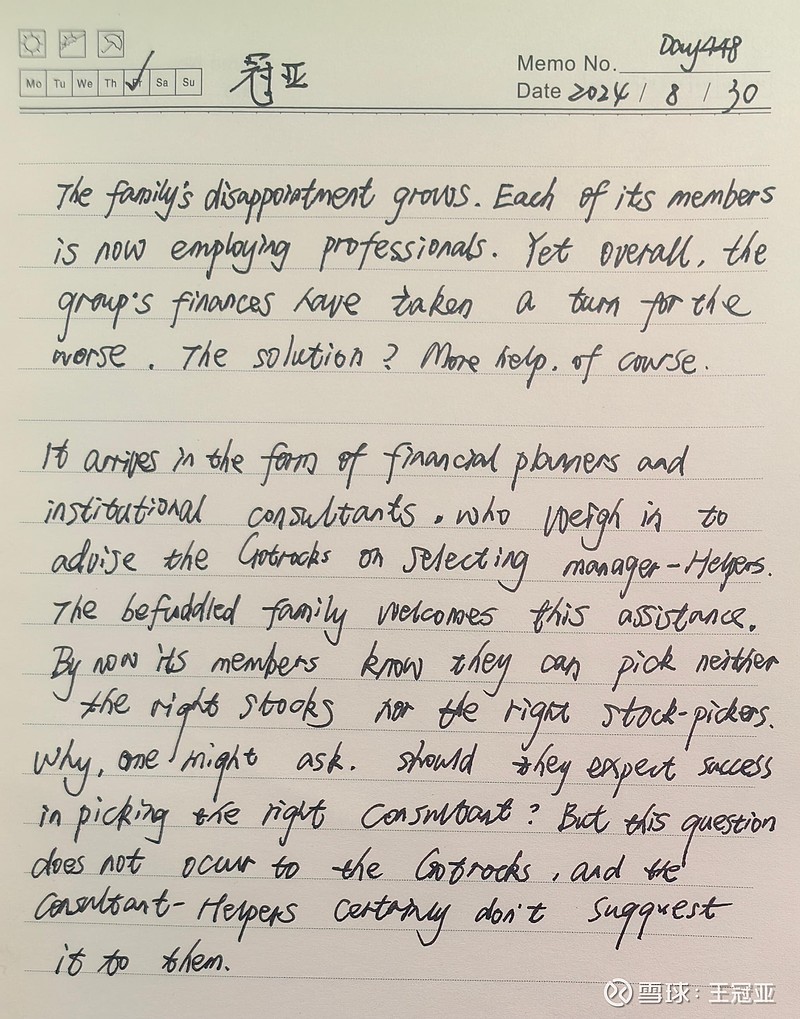 Mo Tu We Th Fr Sa Su
冠亚
Memo No. Day448
Date 2024 / 8 / 30
The family's disappointment grows. Each of its members
is now employing professionals. Yet overall, the
group's finances have taken a turn for the
worse. The solution? More help. of course.
It arrives in the form of financial planners and
institutional consultants. who weigh in to
advise the Gotrocks on selecting manager-Helpers.
The befuddled family welcomes this assistance.
By now its members know they can pick neither
the right stocks nor the right stock-pickers.
Why, one might ask. should they expect success
in picking the right consultant? But this question
does not occur to the Gotrocks, and the
Consultant-Helpers certainly don't sugguest
it to them.
雪球：王冠亚